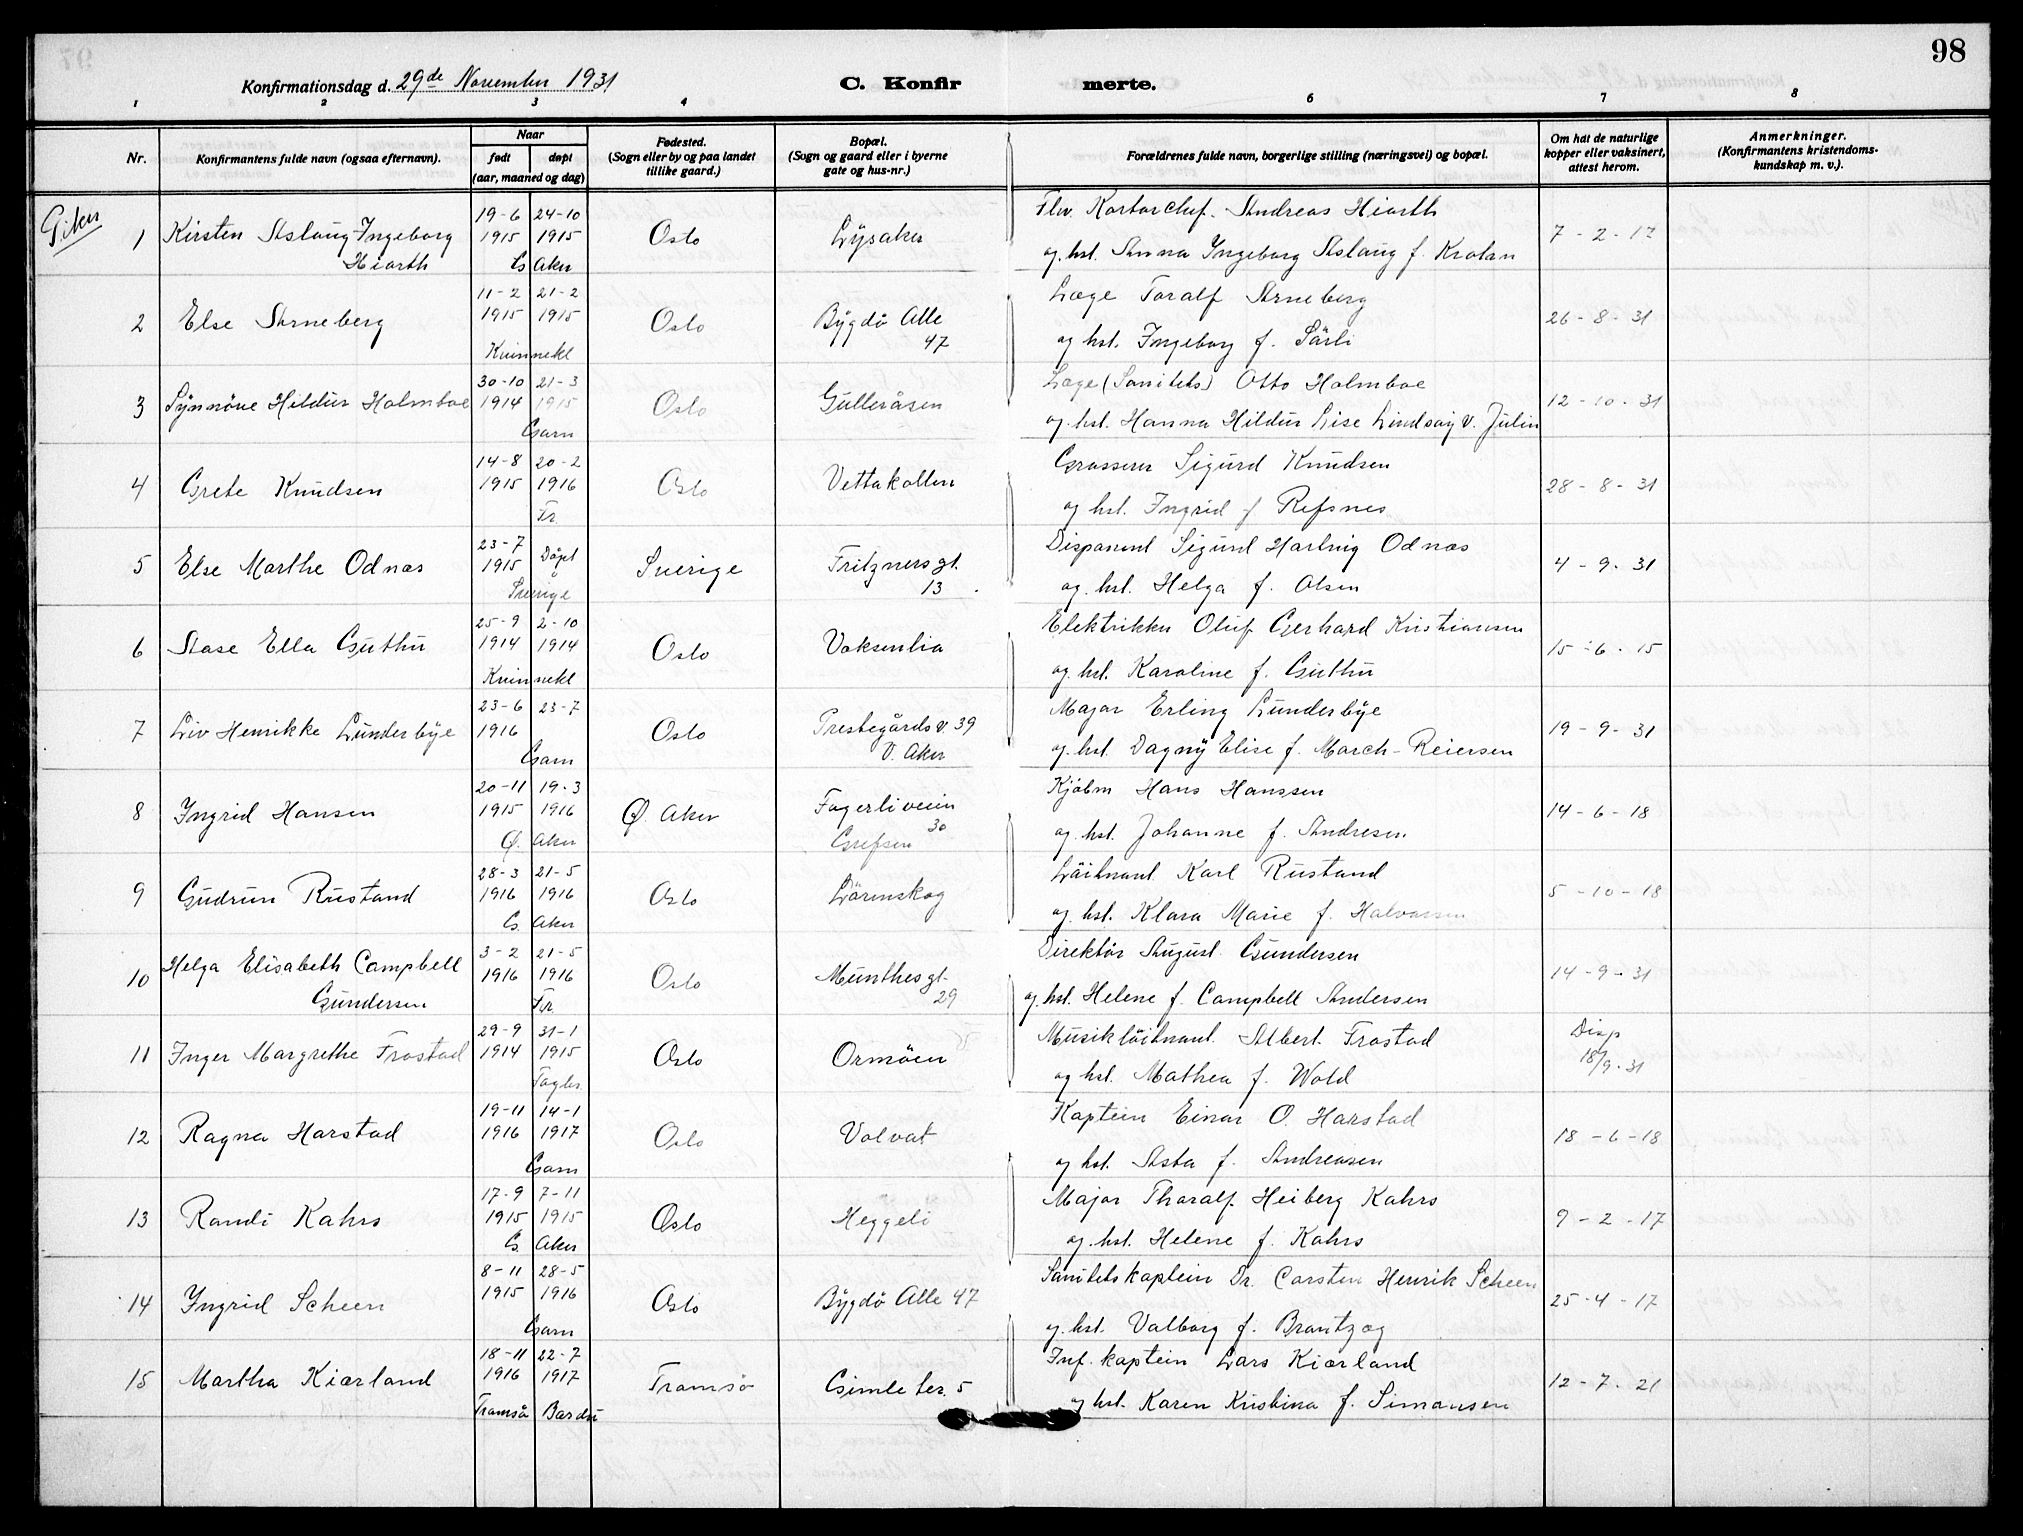 98
Konfirmationsdag d. 29de November 1931
C. Konfirmerte.
1 2 3 4 6 7 8
Nr.
Konfirmantens fulde navn (ogsaa efternavn).
Naar
født døpt
(aar, maaned og dag)
Fødested.
(Sogn eller by og paa landet
tillike gaard.)
Bopæl.
(Sogn og gaard eller i byerne
gate og hus-nr.)
Forældrenes fulde navn, borgerlige stilling (næringsvei) og bopæl.
Om hat de naturlige
kopper eller vaksinert,
attest herom.
Anmerkninger.
(Konfirmantens kristendoms-
kundskap m. v.)
Piker
19-6 24-10 Flv. Kartorchef. Andreas Hiorth
1 Kirsten Aslaug Ingeborg 1915 1915 Oslo Lysaker 7-2-17
Hiorth G Aker og hst. Anna Ingeborg Aslaug f.
11-2 21-2 Læge Toralf Arneberg
2 Else Arneberg 1915 1915 Oslo Bygdö Alle 26-8-31
Kvinnekl 47 og hst. Ingeborg f. Särli
30-10 21-3 Læge (Sanitets) Otto Holmboe
3 Synnöve Hildur Holmboe 1914 1915 Oslo Gulleråsen 12-10-31
Garn og hst. Hanna Hildur Lise Lindsay v. Julin
14-8 20-2 Grosserer Sigurd Knudsen
4 Grete Knudsen 1915 1916 Oslo Vettakollen 28-8-31
Fr. og hst. Ingrid f Refsnes
23-7 Döpt Disponent Sigurd Hartvig Odnæs
5 Else Marthe Odnæs 1915 Sverige Fritznersgt. 4-9-31
Sverige 13 og hst. Helga f. Olsen
25-9 2-10 Elektriker Oluf Gerhard Kristiansen
6 Aase Ella Guthu 1914 1914 Oslo Voksenlia 15-6-15
Kvinnekl og hst. Karoline f. Guthu
23-6 23-7 Major Erling Lundesbye
7 Liv Henrikke Lundesbye 1916 Oslo Prestegårdsv. 39 19-9-31
Gam V. Aker og hst. Dagny Elise f. March-Reiersen
20-11 19-3 Kjöbm Hans Hanssen
8 Ingrid Hansen 1915 1916 Ø. Aker Fagerliveien 30 14-6-18
Ø. Aker Grefsen og hst. Johanne f. Andresen
28-3 21-5 Löitnant Karl Rustand
9 Gudrun Rustand 1916 1916 Oslo Lörenskog 5-10-18
G. Aker og hst. Klara Marie f. Halvorsen
3-2 21-5 Direktör August Gundersen
10 Helga Elisabeth Campbell 1916 1916 Oslo Munthesgt. 14-9-31
Gundersen Fr 29 og hst. Helene f. Campbell Andersen
29-9 31-1 Musiklöitnant Albert Frostad Disp
11 Inger Margrethe Frostad 1914 1915 Oslo Ormöen 18/9-31
Fagb. og hst. Mathea f. Wold
19-11 14-1 Kaptein Einar O. Harstad
12 Ragna Harstad 1916 1917 Oslo Volvat 18-6-18
Gam og hst. Asta f. Andreasen
17-9 7-11 Major Thoralf Heiberg Kahrs
13 Randi Kahrs 1915 1915 Oslo Heggeli 9-2-17
G. Aker og hst. Helene f. Kahrs
8-11 28-5 Sanitetskaptein Dr. Carsten Henrik Scheen
14 Ingrid Scheen 1915 1916 Oslo Bygdö Alle 47 25-4-17
Garn og hst. Valborg f. Brantzæg
18-11 22-7 Inf. kaptein Lars Kiærland
15 Martha Kiærland 1916 1917 Tromsö Gimle ter. 5 12-7-21
Tromsö Bardu og hst. Karen Kristina f. Simonsen